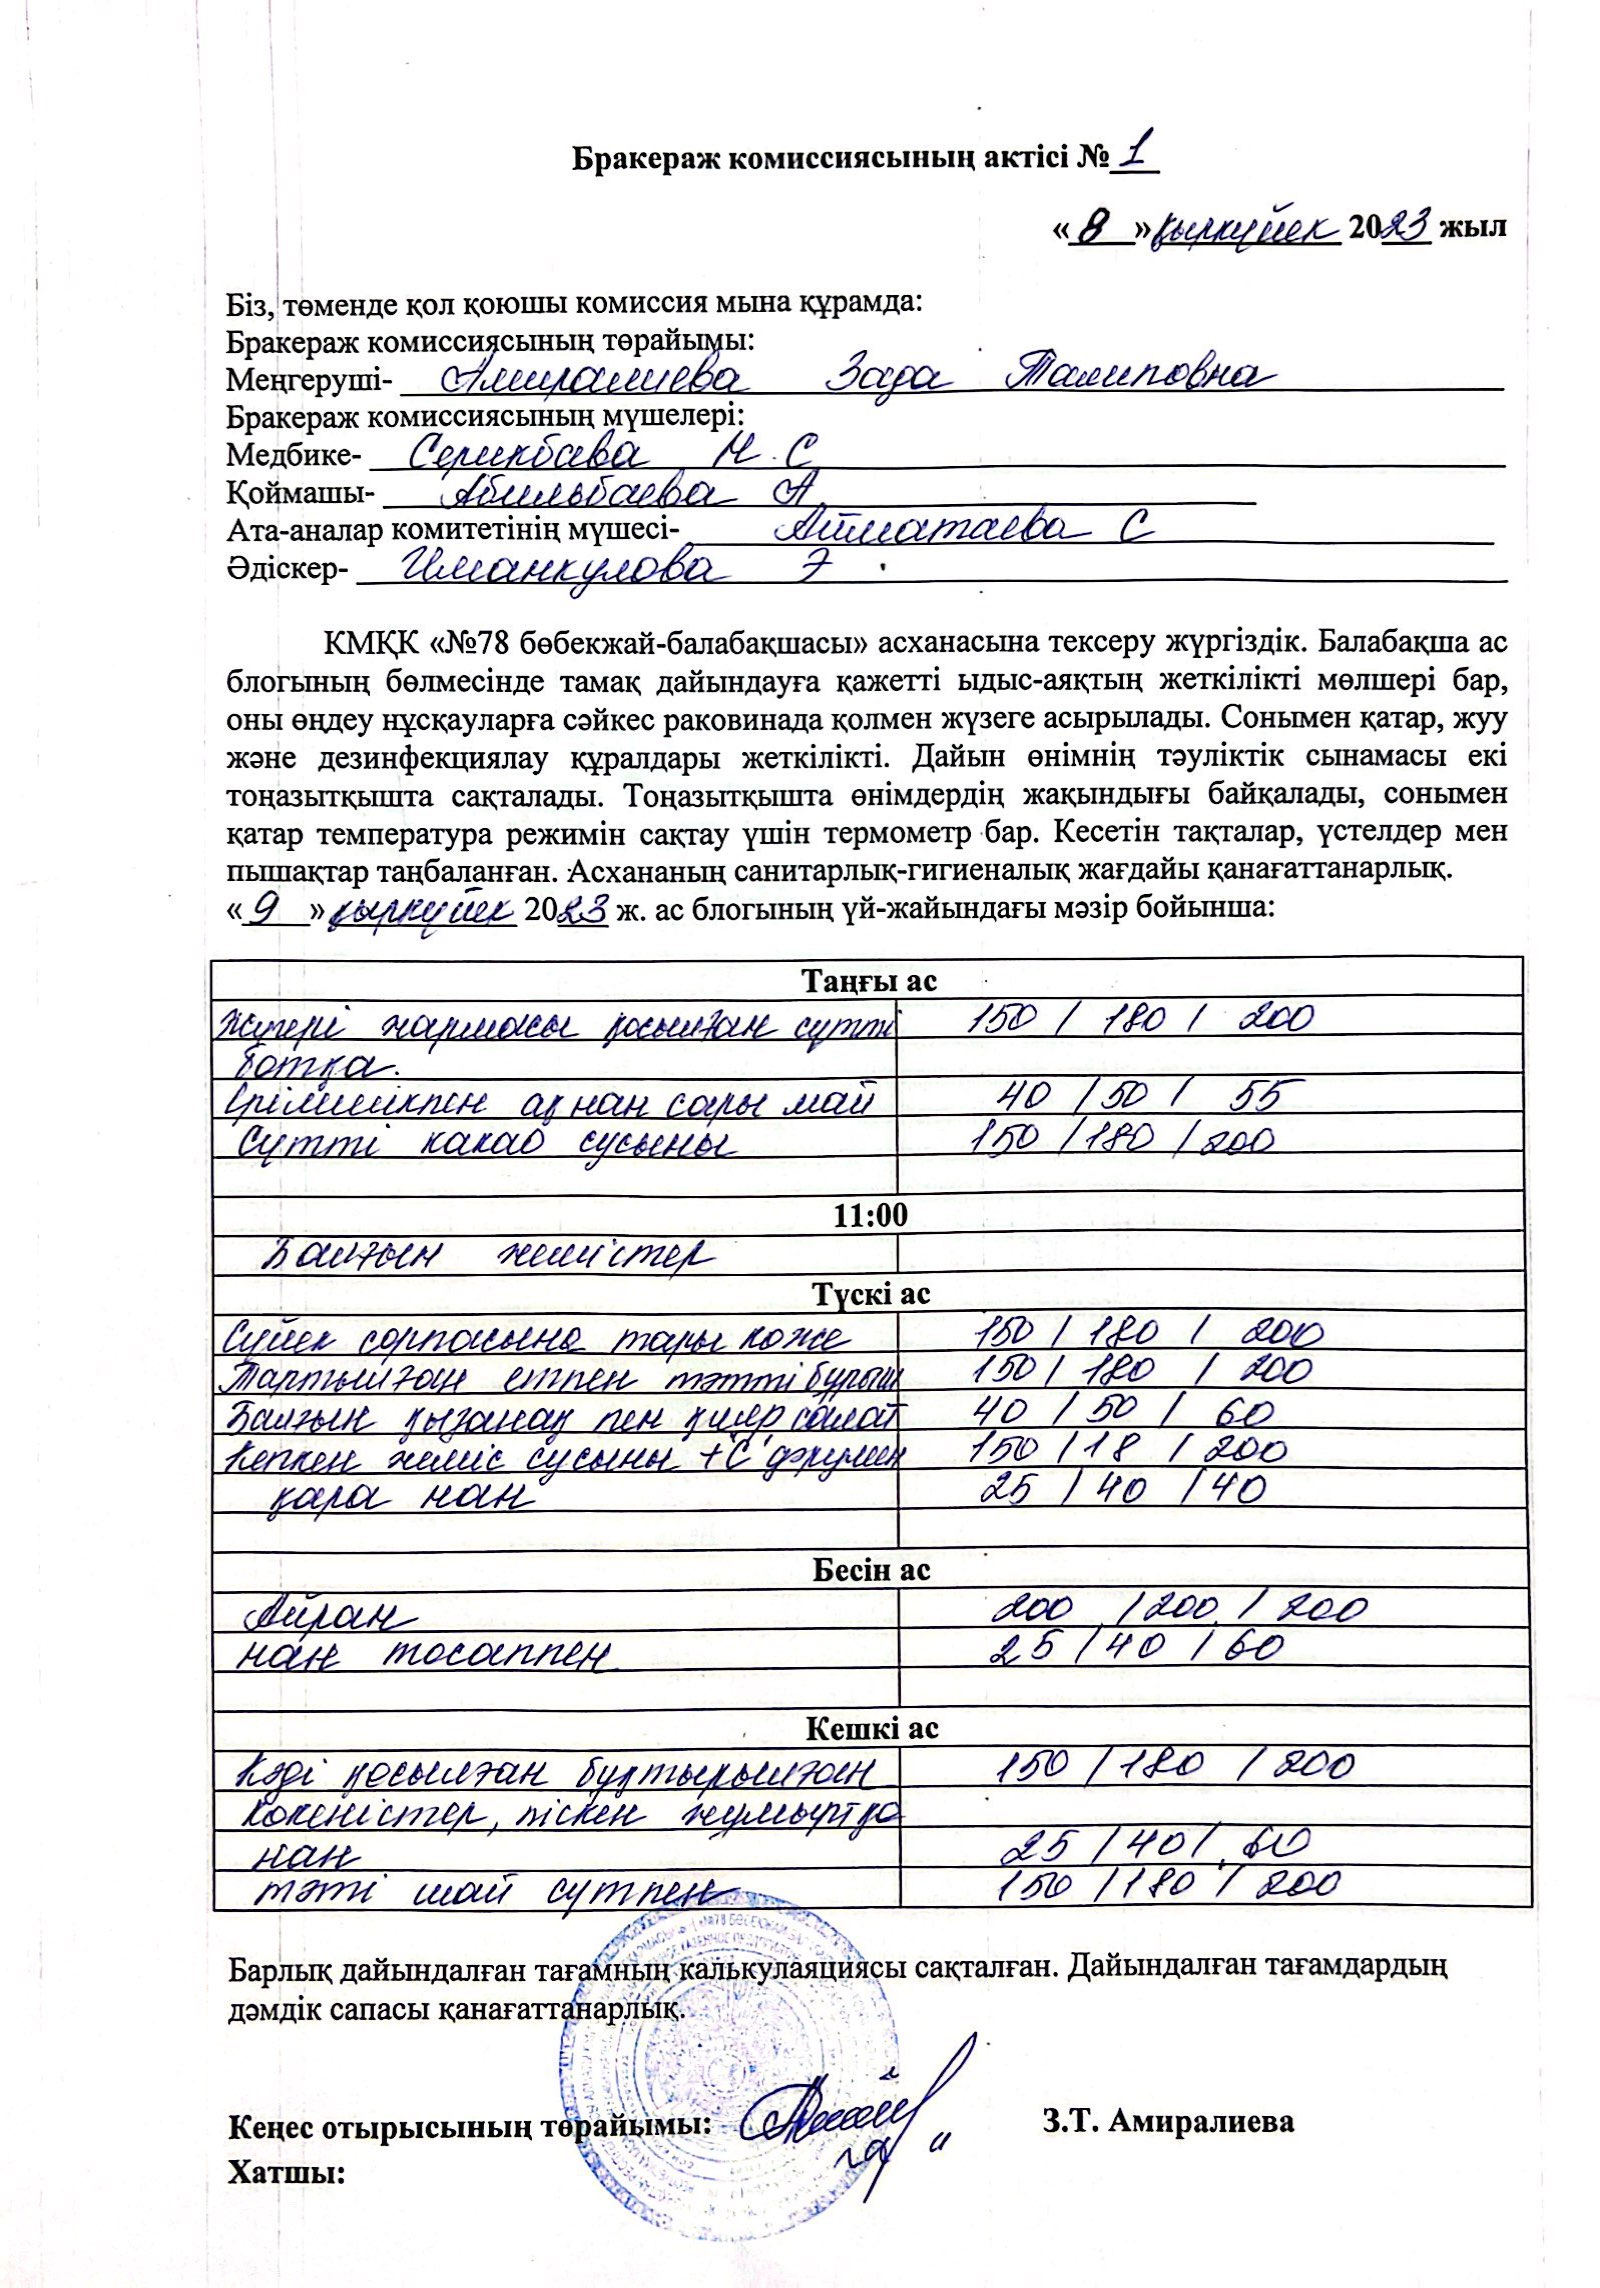 Бракераж комиссиясының актісі № 1
« 8 » қыркүйек 2023 жыл
Біз, төменде қол қоюшы комиссия мына құрамда:
Бракераж комиссиясының төрайымы:
Меңгеруші- Амиралиева Зада Талиповна
Бракераж комиссиясының мүшелері:
Медбике- Серикбаева Н.С
Қоймашы- Абильбаева А
Ата-аналар комитетінің мүшесі- С
Әдіскер- Иманкулова Э
КМҚК «№78 бөбекжай-балабақшасы» асханасына тексеру жүргіздік. Балабақша ас
блогының бөлмесінде тамақ дайындауға қажетті ыдыс-аяқтың жеткілікті мөлшері бар,
оны өңдеу нұсқауларға сәйкес раковинада қолмен жүзеге асырылады. Сонымен қатар, жуу
және дезинфекциялау құралдары жеткілікті. Дайын өнімнің тәуліктік сынамасы екі
тоңазытқышта сақталады. Тоңазытқышта өнімдердің жақындығы байқалады, сонымен
қатар температура режимін сақтау үшін термометр бар. Кесетін тақталар, үстелдер мен
пышақтар таңбаланған. Асхананың санитарлық-гигиеналық жағдайы қанағаттанарлық.
« 9 » қыркүйек 2023 ж. ас блогының үй-жайындағы мәзір бойынша:
Таңғы ас
Жүгері жармасы қосылған сүтті 150 / 180 / 200
ботқа.
Ірімшікпен ақ нан сары май 40 / 50 / 55
Сүтті какао сусыны 150 / 180 / 200
11:00
Балғын жемістер
Түскі ас
Сүйек сорпасына тары көже 150 / 180 / 200
Тартылған етпен тәтті бұрыш 150 / 180 / 200
Балғын қызанақ пен қияр салат 40 / 50 / 60
Кепкен жеміс сусыны + "С" дәрумен 150 / 18 / 200
қара нан 25 / 40 / 40
Бесін ас
Айран 200 / 200 / 200
нан тосаппен 25 / 40 / 60
Кешкі ас
Кәді қосылған бұқтырылған 150 / 180 / 200
көкөністер, піскен жұмыртқа
нан 25 / 40 / 60
тәтті шай сүтпен 150 / 180 / 200
Барлық дайындалған тағамның калькулаяциясы сақталған. Дайындалған тағамдардың
дәмдік сапасы қанағаттанарлық.
Кеңес отырысының төрайымы: З.Т. Амиралиева
Хатшы: